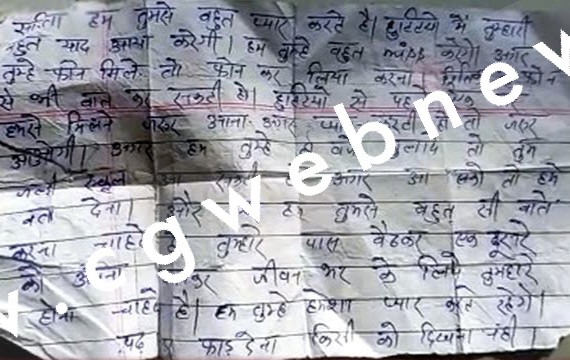 सविता हम तुमसे बहुत प्यार करते है। छुटिटयो में तुम्हारी
बहुत याद आया करेगी। हम तुम्हे बहुत करेगे। अगर
तुम्हे फोन मिले तो फोन कर लिया करना। फोन
से भी बात कर सकती हो। छुटिटयो से पहले
हमसे मिलने जरूर आना अगर प्यार करती हो तो जरूर
आओगी। अगर हम तुम्हे बुलाए तो तुम
जल्दी स्कूल आ सकती हो अगर आ सको तो हमे
बता देना। और हम तुमसे बहुत सी बाते
करना चाहते है तुम्हारे पास बैठकर एक दूसरे
को अपना जीवन भर के लिये तुम्हारे
होना चाहते है। हम तुम्हे हमेशा प्यार करते रहेगे।
पढ़ फाड़ देना किसी को दिखाना नही।
w.cgwebnew